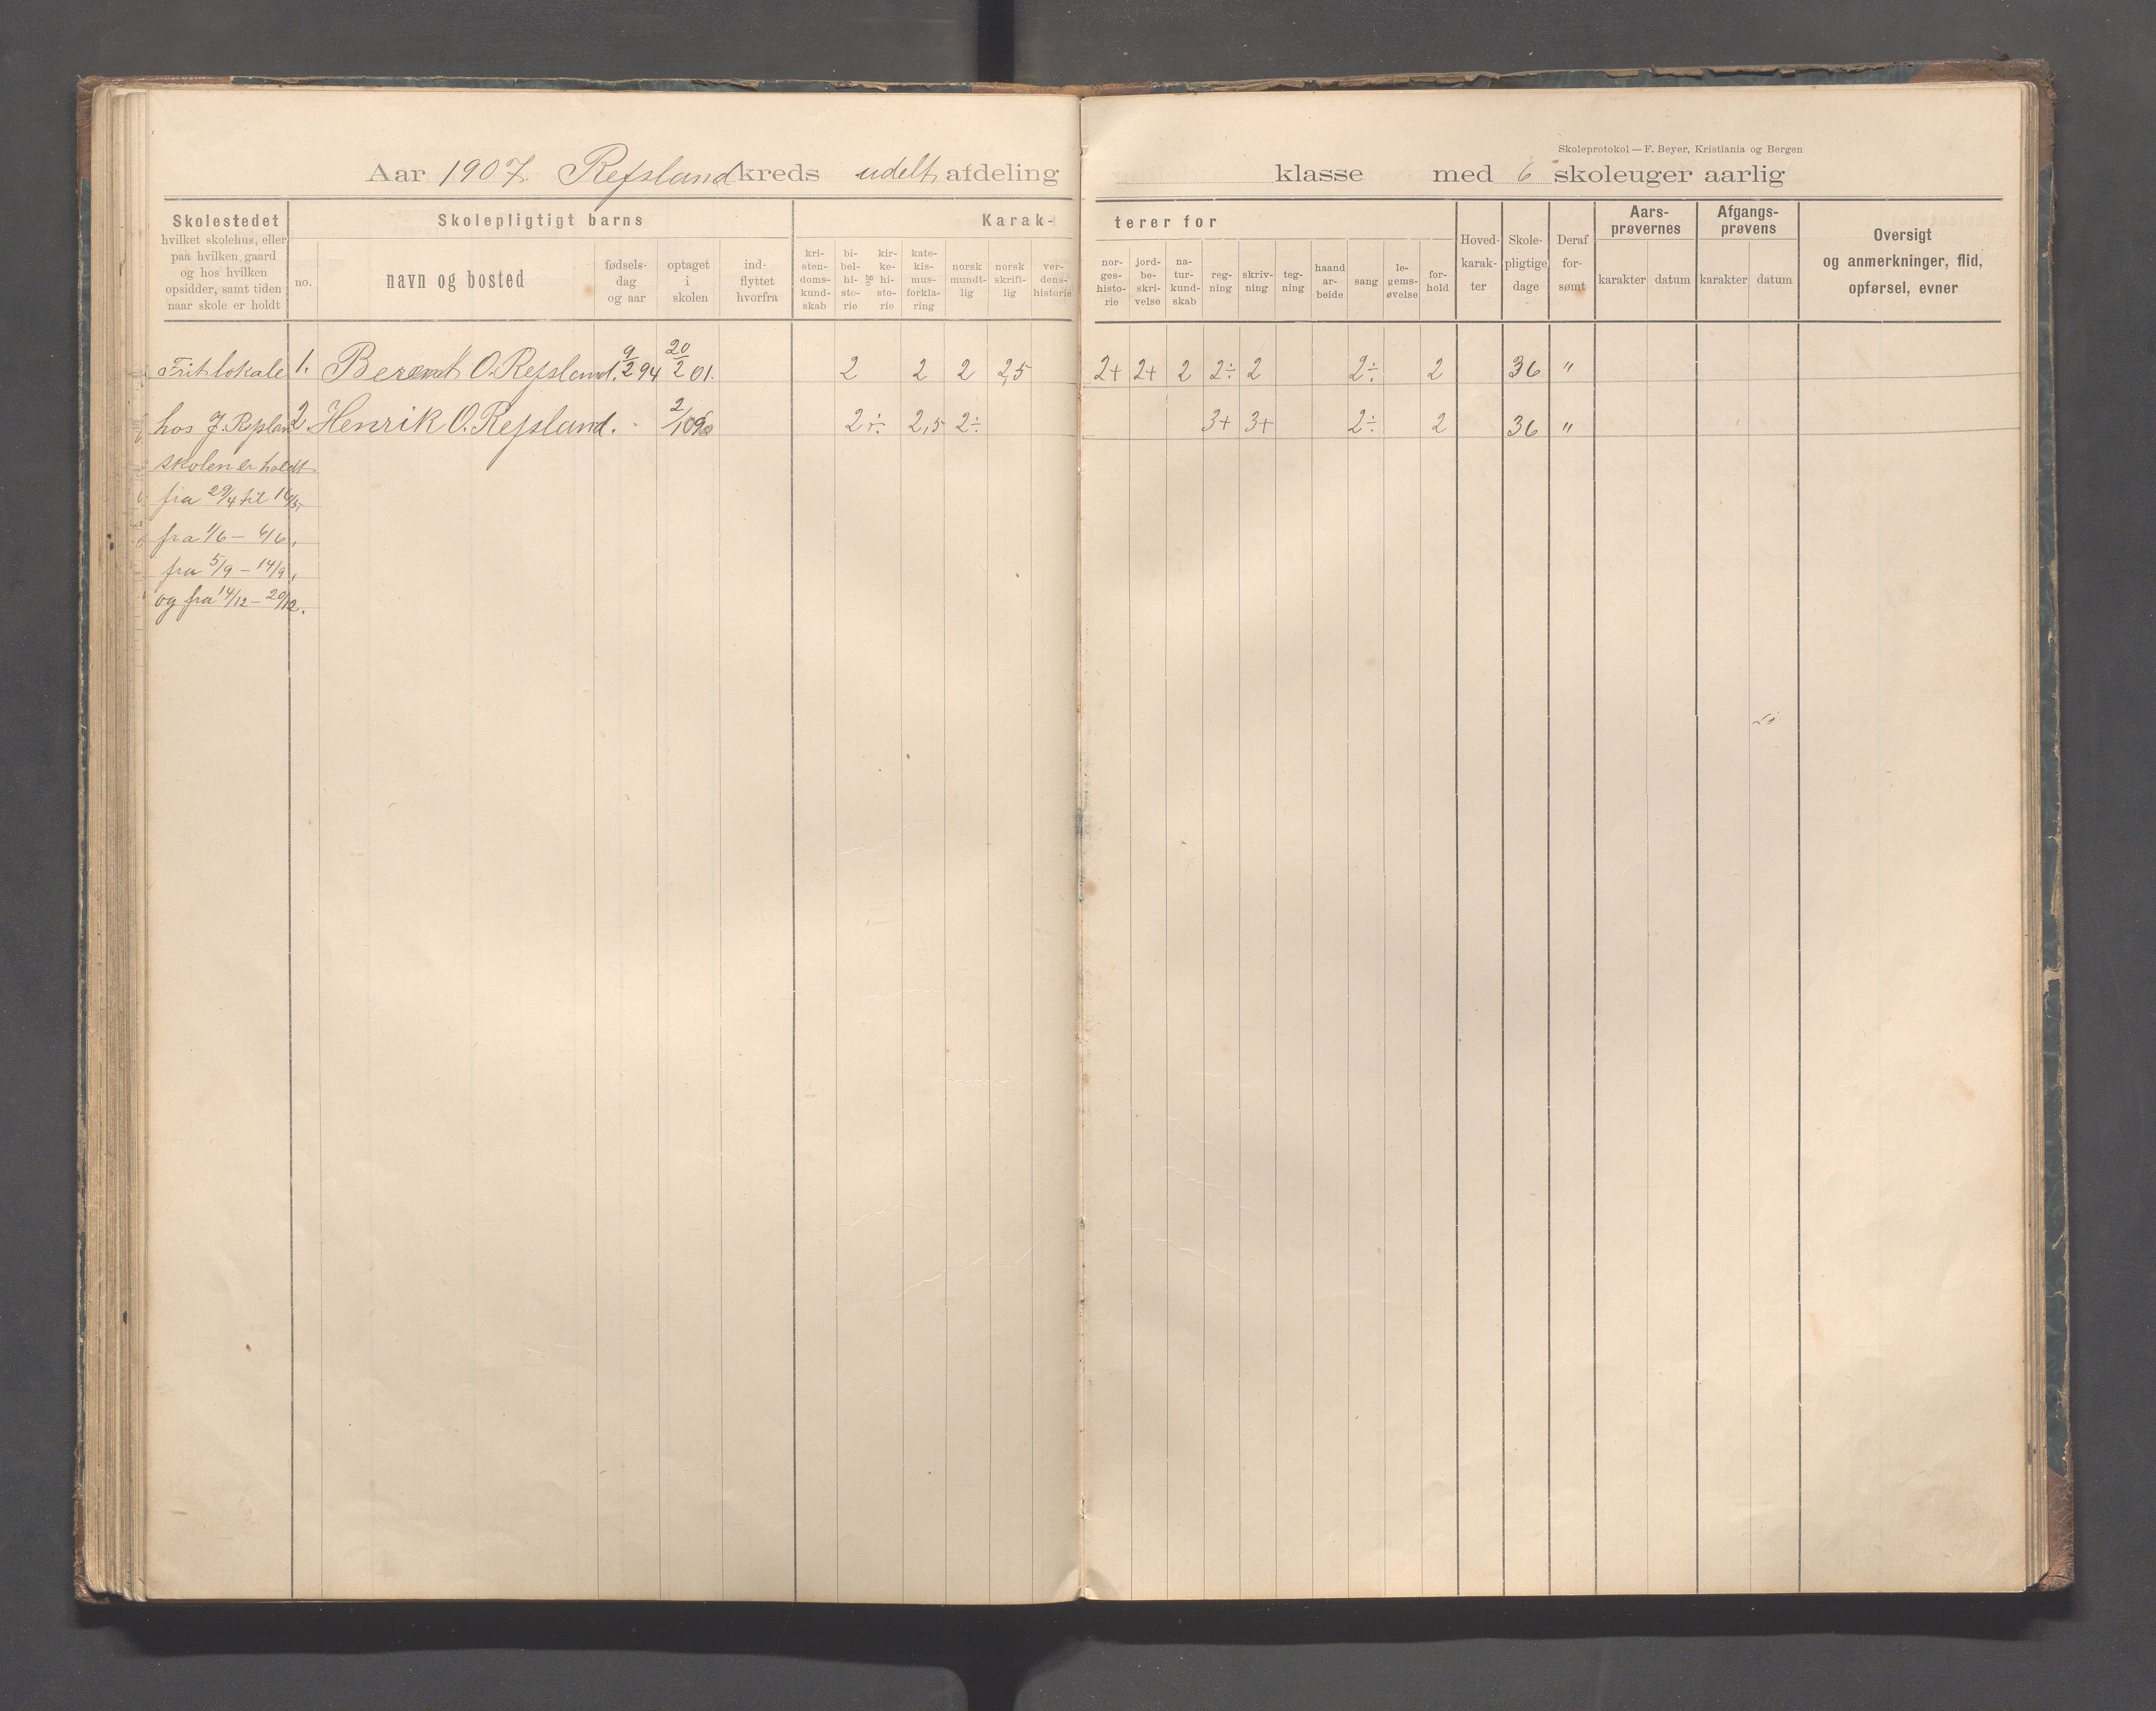 Skoleprotokol — F. Beyer, Kristiania og Bergen
Aar 1907. Refsland kreds udelt afdeling klasse med 6 skoleuger aarlig
Skolestedet
hvilket skolehus, eller
paa hvilken gaard
og hos hvilken
opsidder, samt tiden
naar skole er holdt
Skolepligtigt barns
no.
navn og bosted
fødsels-
dag
og aar
optaget
i
skolen
ind-
flyttet
hvorfra
Karak-
kri-
sten-
doms-
kund-
skab
bi-
bel-
hi-
sto-
rie
og
kir-
ke-
hi-
sto-
rie
kate-
kis-
mus-
forkla-
ring
norsk
mundt-
lig
norsk
skrift-
lig
ver-
dens-
historie
terer for
nor-
ges-
histo-
rie
jord-
be-
skri-
velse
na-
tur-
kund-
skab
reg-
ning
skriv-
ning
teg-
ning
haand
ar-
beide
sang
le-
gems-
øvelse
for-
hold
Hoved-
karak-
ter
Skole-
pligtige
dage
Deraf
for-
sømt
Aars-
prøvernes
karakter datum
Afgangs-
prøvens
karakter datum
Oversigt
og anmerkninger, flid,
opførsel, evner
Frit lokale 1. Berent O. Refsland. 9/2 94 20/2 01. 2 2 2 2,5 2+ 2+ 2 2÷ 2 2÷ 2 36 "
hos J. Refsland 2. Henrik O. Refsland. 2/10 2÷ 2,5 2÷ 3+ 3+ 2÷ 2 36 "
skolen er holdt
fra 29/4 til
fra 1/6 — 6/6,
fra 5/9 — 14/9,
og fra 14/12 — 20/12.